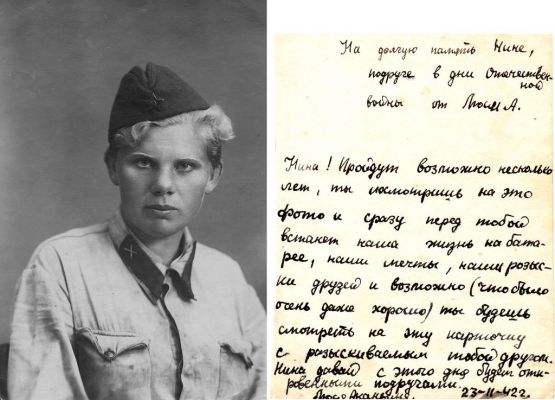 На долгую память Нине,
подруге в дни Отечествен-
ной
войны от Люси А.
Нина! Пройдут возможно несколько
лет, ты посмотришь на это
фото и сразу перед тобой
встанет наша жизнь на бата-
рее, наши мечты, наши розыс-
ки друзей и возможно (что было
очень даже хорошо) ты будешь
смотреть на эту карточку
с разыскиваемым тобой другом.
Нина давай с этого дня будем отк-
ровенными подругами.
Люся 23-II-42г.